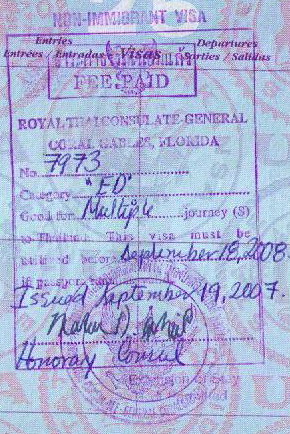 NON-IMMIGRANT VISA
Entries Departures
Entrées / Entradas Visas Sorties / Salidas
FEE PAID
ROYAL THAI CONSULATE-GENERAL
CORAL GABLES, FLORIDA
No. 7973
Category "ED"
Good for Multiple journey (S)
to Thailand. This visa must be
utilized before September 18, 2008.
if passport
Issued September 19, 2007.
Honorary Consul